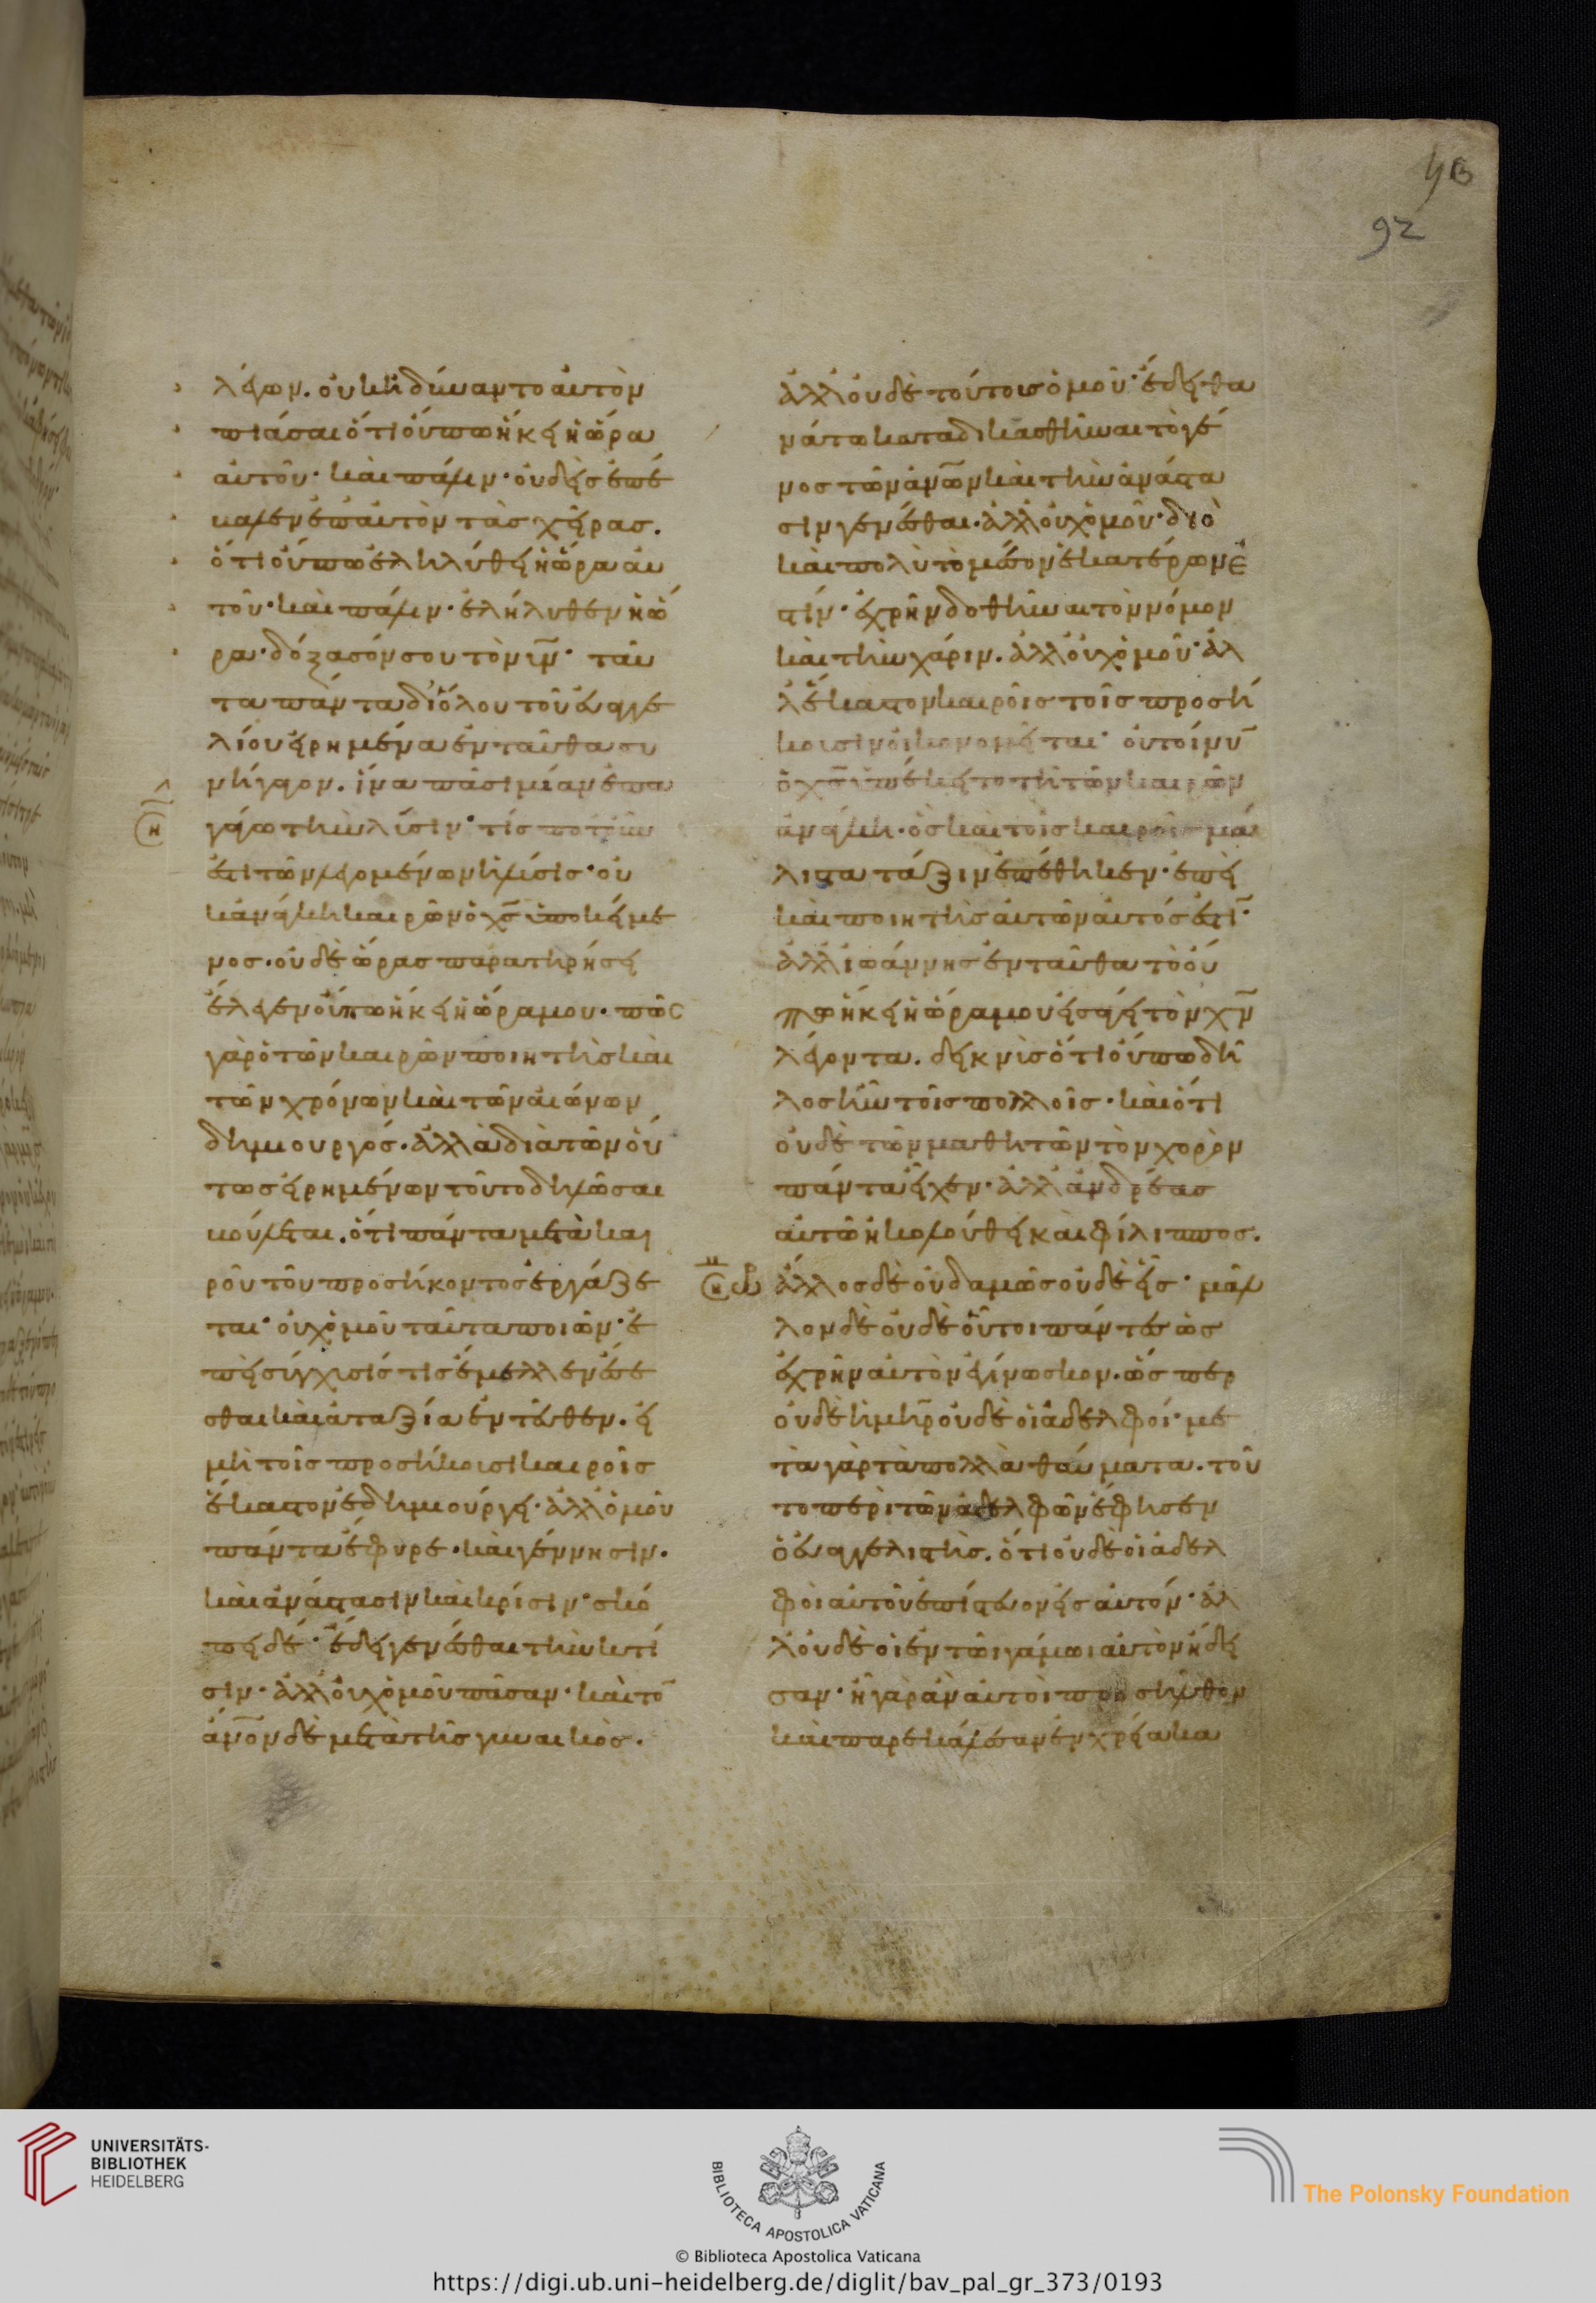 λέγων. οὐκ ἠδύναντο αὐτὸν
πιάσαι ὅτι οὔπω ἥκει ἡ ὥρα
αὐτοῦ· καὶ πάλιν· οὐδεὶς ἐπέ
βαλεν ἐπ' αὐτὸν τὰς χεῖρας.
ὅτι οὔπω ἐληλύθει ἡ ὥρα αὐ
τοῦ· καὶ πάλιν· ἐλήλυθεν ἡ ὥ
ρα· δόξασόν σου τὸν υ̅ν̅· ταῦ
τα πάντα δι' ὅλου τοῦ εὐαγγε
λίου εἰρημένα ἐνταῦθα συ
νήγαγον. ἵνα πᾶσι μίαν ἐπα
γάγω τὴν λύσιν· τίς ποτ' οὖν
ἐστὶ τῶν λεγομένων ἡ λύσις· οὐ
κ ἀνάγκη καιρῶν ὁ χ̅ς̅ ὑποκείμε
νος· οὐδὲ ὥρας παρατηρήσει
ἔλεγεν οὔπω ἥκει ἡ ὥρα μου· πῶς
γὰρ ὁ τῶν καιρῶν ποιητὴς καὶ
τῶν χρόνων καὶ τῶν αἰώνων
δημιουργός· ἀλλὰ διὰ τῶν οὕ
τως εἰρημένων τοῦτο δηλῶσαι
βούλεται. ὅτι πάντα μετὰ και
ροῦ τοῦ προσήκοντος ἐργάζε
ται· οὐχ ὁμοῦ ταῦτα ποιῶν· ἐ
πεὶ σύγχισίς τις ἔμελλεν ἔσε
σθαι καὶ ἀταξία ἐντεῦθεν. εἰ
μὴ τοῖς προσήκουσι καιροῖς
ἕκαστον ἐδημιούργει· ἀλλ' ὁμοῦ
πάντα ἔφυρε· καὶ γέννησιν.
καὶ ἀνάστασιν καὶ κρίσιν· σκό
πει δέ· ἔδει γενέσθαι τὴν κτί
σιν· ἀλλ' οὐχ ὁμοῦ πᾶσαν· καὶ το̅
ἄν̅ον δὲ μετὰ τῆς γυναικός.
ἀλλ' οὐδὲ τούτους ὁμοῦ· ἔδει θα
νάτω καταδικασθῆναι τὸ γέ
νος τῶν ἀν̅ων καὶ τὴν ἀνάστα
σιν γενέσθαι· ἀλλ' οὐχ ὁμοῦ· διὸ
καὶ πολὺ τὸ μέσον ἑκατέρων ἐ
στίν· ἐχρῆν δοθῆναι τὸν νόμον
καὶ τὴν χάριν. ἀλλ' οὐχ ὁμοῦ· ἀλ
λ' ἕκαστον καιροῖς τοῖς προσή
κουσιν οἰκονομεῖται· οὐ τοίνυ̅
ὁ χ̅ς̅ ὑπέκειτο τῆ τῶν καιρῶν
ἀνάγκη· ὃς καὶ τοῖς καιροῖς μά
λιστα τάξιν ἐπέθηκεν· ἐπεὶ
καὶ ποιητὴς αὐτῶν αὐτός ἐστι̅·
ἀλλ' ἰωάννης ἐνταῦθα τὸ οὔ
πω ἥκει ἡ ὥρα μου εἰσάγει τὸν χ̅ν̅
λέγοντα. δεικνὺς ὅτι οὔπω δῆ
λος ἦν τοῖς πολλοῖς· καὶ ὅτι
οὐδὲ τῶν μαθητῶν τὸν χορὸν
πάντα εἶχεν· ἀλλ' ἀνδρέας
αὐτῶ ἠκολούθει καὶ φίλιππος.
ἄλλος δὲ οὐδαμῶς οὐδὲ εἷς· μᾶλ
λον δὲ οὐδὲ οὗτοι πάντες ὡς
ἐχρῆν αὐτὸν ἐγίνωσκον· ὥσπερ
οὐδὲ ἡ μη̅ρ οὐδὲ οἱ ἀδελφοί· με
τὰ γὰρ τὰ πολλὰ θαύματα· τοῦ
το περὶ τῶν ἀδελφῶν ἔφησεν
ὁ εὐαγγελιστὴς. ὅτι οὐδὲ οἱ ἀδελ
φοὶ αὐτοῦ ἐπίστευον εἰς αὐτόν· ἀλ
λ' οὐδὲ οἱ ἐν τῶι γάμωι αὐτὸν ἤδει
σαν· ἦ γὰρ ἂν αὐτοὶ προσῆλθον
καὶ παρεκάλεσαν ἐν χρεία κα
92
UNIVERSITÄTS-
BIBLIOTHEK
HEIDELBERG
BIBLIOTECA APOSTOLICA VATICANA
The Polonsky Foundation
© Biblioteca Apostolica Vaticana
https://digi.ub.uni-heidelberg.de/diglit/bav_pal_gr_373/0193